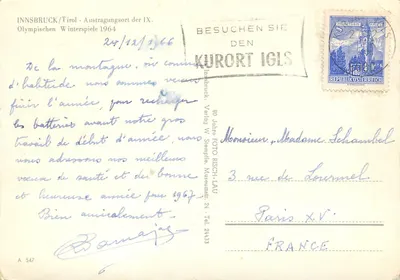 INNSBRUCK/Tirol - Austragungsort der IX.
Olympischen Winterspiele 1964
28/12/1966
De la montagne, où comme
d'habitude nous sommes venus
finir l'année, pour recharger
les batteries avant notre gros
travail de début d'année, nous
vous adressons nos meilleurs
vœux de santé et de bonne
et heureuse année pour 1967.
Bien amicalement.
A 547
BESUCHEN SIE
DEN
KURORT IGLS
REPUBLIK ÖSTERREICH
90 Jahre FOTO RISCH-LAU
Monsieur, Madame
3 rue de Lourmel
Paris XV.
FRANCE